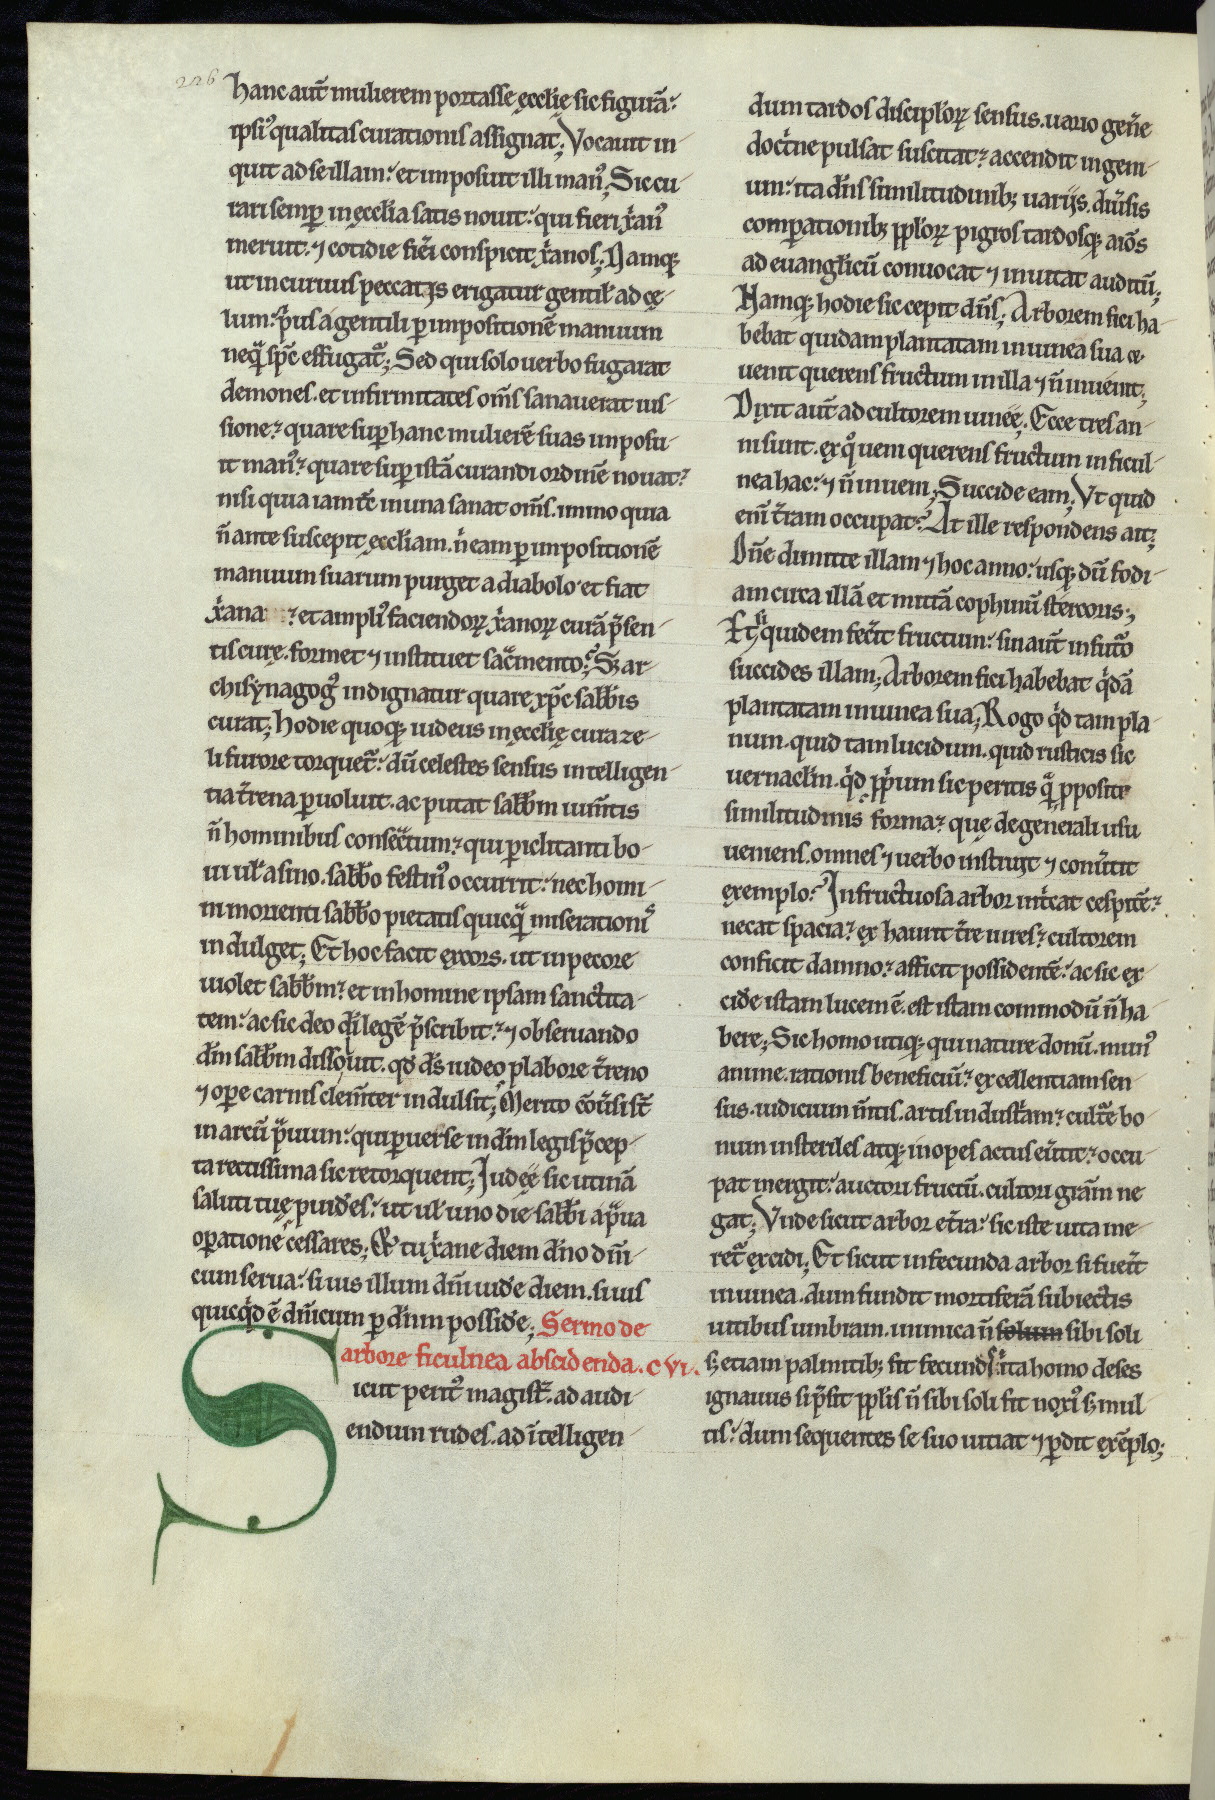 226
hanc aut̄ mulierem portasse ęcclię sic figurā:
ipsi᷒ qualitas curationis assignat; Vocauit in
quit ad se illam: et imposuit illi man᷒; Sic cu
rari semp̱ in ęccƚia satis nouit: qui fieri xp̄an᷒
meruit. ⁊ cotidie fieri conspicit xp̄anos; Namq;
ut incuruus peccatis erigatur gentiƚ ad cę
lum: p̄us a gentili p̱ impositionē manuum
neq̄ sp̄c effugat᷑; Sed qui solo uerbo fugarat
demones. et infirmitates om̄s sanauerat ius
sione? quare sup̱ hanc mulierē suas imposu
it man᷒? quare sup̱ istā curandi ordinē nouat?
nisi quia iam tc̄ in una sanat om̄s. immo quia
n̄ ante suscepit ęccƚiam. n̄ eam p̱ impositionē
manuum suarum purget a diabolo. et fiat
xp̄ana ? et ampli᷒ faciendoꝝ xp̄anoꝝ curā p̄sen
tis curę. formet ⁊ instituet sac̄mento? Sꝫ ar
chisynagog᷒ indignatur quare xp̄c sabƀis
curat; hodie quoq; iudeus in ęcclię cura ze
li furore torquet᷑: dū celestes sensus intelligen
tia t̄rena p̱uoluit. ac putat sabƀm ium̄tis
n̄ hominibus consec̄tum? qui p̱iclitanti bo
ui uƚ asino. sabƀo festin᷒ occurrit: nec homi
ni morienti sabƀo pietatis quicq̄ miserationis
indulget; Et hoc facit excors. ut in pecore
uiolet sabƀm? et in homine ipsam sanctita
tem: ac sic deo d̄i legē p̄scribit? ⁊ obseruando
d̄m sabƀm dissoluit. qd̄ d̄s iudeo p̱ labore t̄reno
⁊ op̱e carnis clem̄ter indulsit; Merito cōūsi st̄
in arcū p̄uum: qui p̱uerse in d̄m legis p̄cep
ta rectissima sic retorquent; Iudęe sic utinā
saluti tuę p̱uid̄es: ut uƚ uno die sabƀi a p̄ua
op̱atione cessares; Et tu xp̄ane diem d̄no d̄ni
cum serua: si uis illum dn̄i uid̄e diem. si uis
quicq̄d ē dn̄icum p̱ d̄num possid̄e; Sermo de
arbore ficulnea abscidenda. cvi.
Sicut perit᷒ magist̄. ad audi
endum rudes. ad ītelligen
dum tardos discipƚoꝝ sensus. uario gen̄e
doct̄ne pulsat suscitat? accendit ingeni
um: ita dn̄s similitudinibꝫ uarijs. diu̇sis
comp̱ationibꝫ pp̄ƚoꝝ pigros tardosq; aīos
ad euangƚicū conuocat ⁊ inuitat auditū;
Namq; hodie sic cepit dn̄s; Arborem fici ha
bebat quidam plantatam in uinea sua &
uenit querens fructum in illa ⁊ n̄ inuenit;
Dixit aut̄ ad cultorem uineę; Ecce tres an
ni sunt. ex q̊ uenι querens fructum in ficul
nea hac: ⁊ n̄ inueni; Succide eam; Vt quid
eni t̄ram occupat? At ille respondens ait;
Dn̄e dimitte illam ⁊ hoc anno: usq; dū fodi
am circa illā et mittā cophinū stercoris;
Et si quidem fec̄it fructum: sin aut̄ in fut᷑o
succides illam; Arborem fici habebat q̇dā
plantatam in uinea sua; Rogo q̇d tam pla
num. quid tam lucidum. quid rusticis sic
uernacƚm. q̇d pp̄rium sic peritis q̄ ppositę
similitudinis forma? quę de generali usu
ueniens. omnes ⁊ uerbo instruit ⁊ conu̇tit
exemplo? Infructuosa arbor int̄cat cespitē?
necat spacia? exhaurit t̄re uires? cultorem
conficit damno? afficit possidentē: ac sic ex
cid̄e istam lucem ē. est istam commodū n̄ ha
bere; Sic homo utiq; qui nature donū. mun᷒
anime. rationis beneficiū? excellentiam sen
sus. iudicium m̄tis. artis indust̄am? cult᷑e bo
num in steriles atq; inopes actus eu̇tit? occu
pat mergit: auctori fructū. cultori gr̄am ne
gat; Vnde sicut arbor et̄ra: sic iste uita me
ret᷑ excidi; Et sicut infecunda arbor si fuerit
in uinea. dum fundit mortiferā subiectis
uitibus umbram. inimica n̄ solum sibi soli
sꝫ etiam palmitibꝫ fit fecundis: ita homo deses
ignauus si p̄sit pp̄ƚis n̄ sibi soli fit noxi᷒ sꝫ mul
tis: dum sequentes se suo uitiat ⁊ p̱dit exēplo;